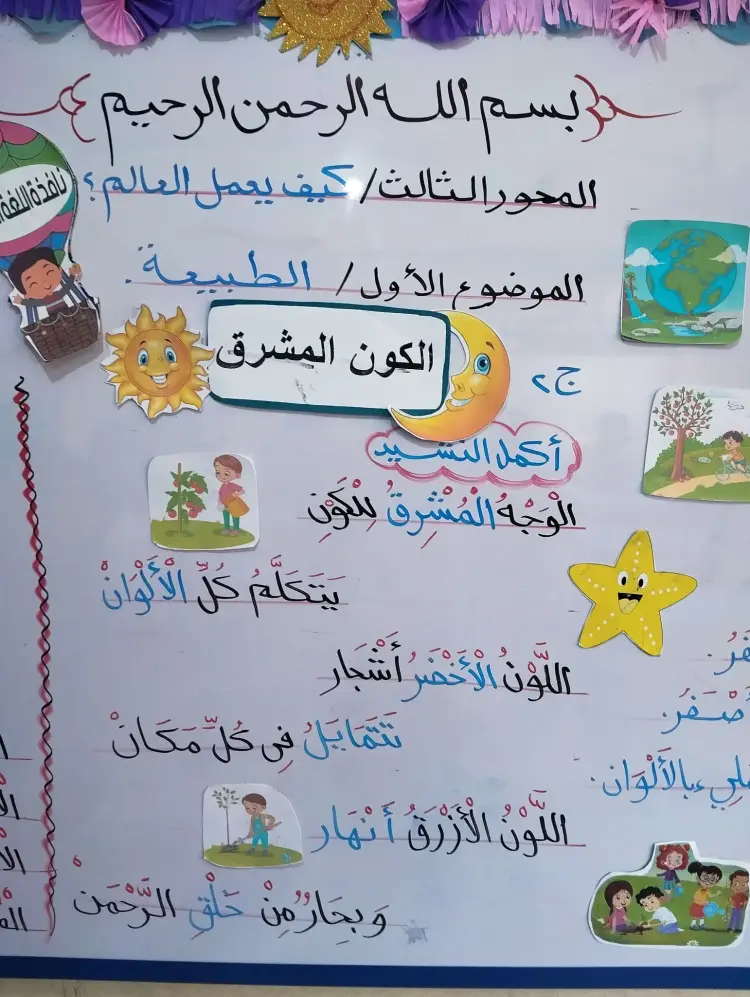 بسم الله الرحمن الرحيم
المحور الثالث/ كيف يعمل العالم؟
نافذة اللغة
الموضوع الأول/ الطبيعة.
الكون المشرق
ج٢
أكمل النشيد
الْوَجْهُ الْمُشْرِقُ لِلْكَوْنِ
يَتَكَلَّمُ كُلِّ الْأَلْوَانْ
اللَّوْنُ الْأَخْضَرُ أَشْجَار
تَتَمَايَلُ فِي كُلِّ مَكَانْ
اللَّوْنُ الْأَزْرَقُ أَنْهَار
وَبِحَارٌ مِنْ خَلْقِ الرَّحْمَنْ
بالْأَلْوَان.